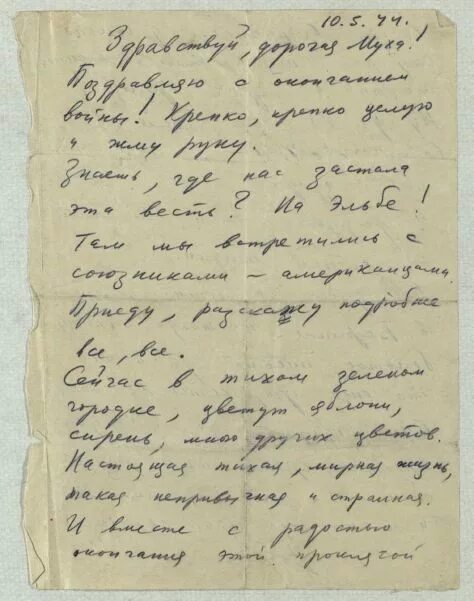 10.5.44.
Здравствуй, дорогая Муха!
Поздравляю с окончанием
войны! Крепко, крепко целую
и жму руку.
Знаешь, где нас застала
эта весть? На Эльбе!
Там мы встретились с
союзниками – американцами.
Приеду, разскажу подробно
все, все.
Сейчас в тихом зеленом
городке, цветут яблони,
сирень, много других цветов.
Настоящая тихая, мирная жизнь,
такая непривычная и странная.
И вместе с радостью
окончания этой проклятой